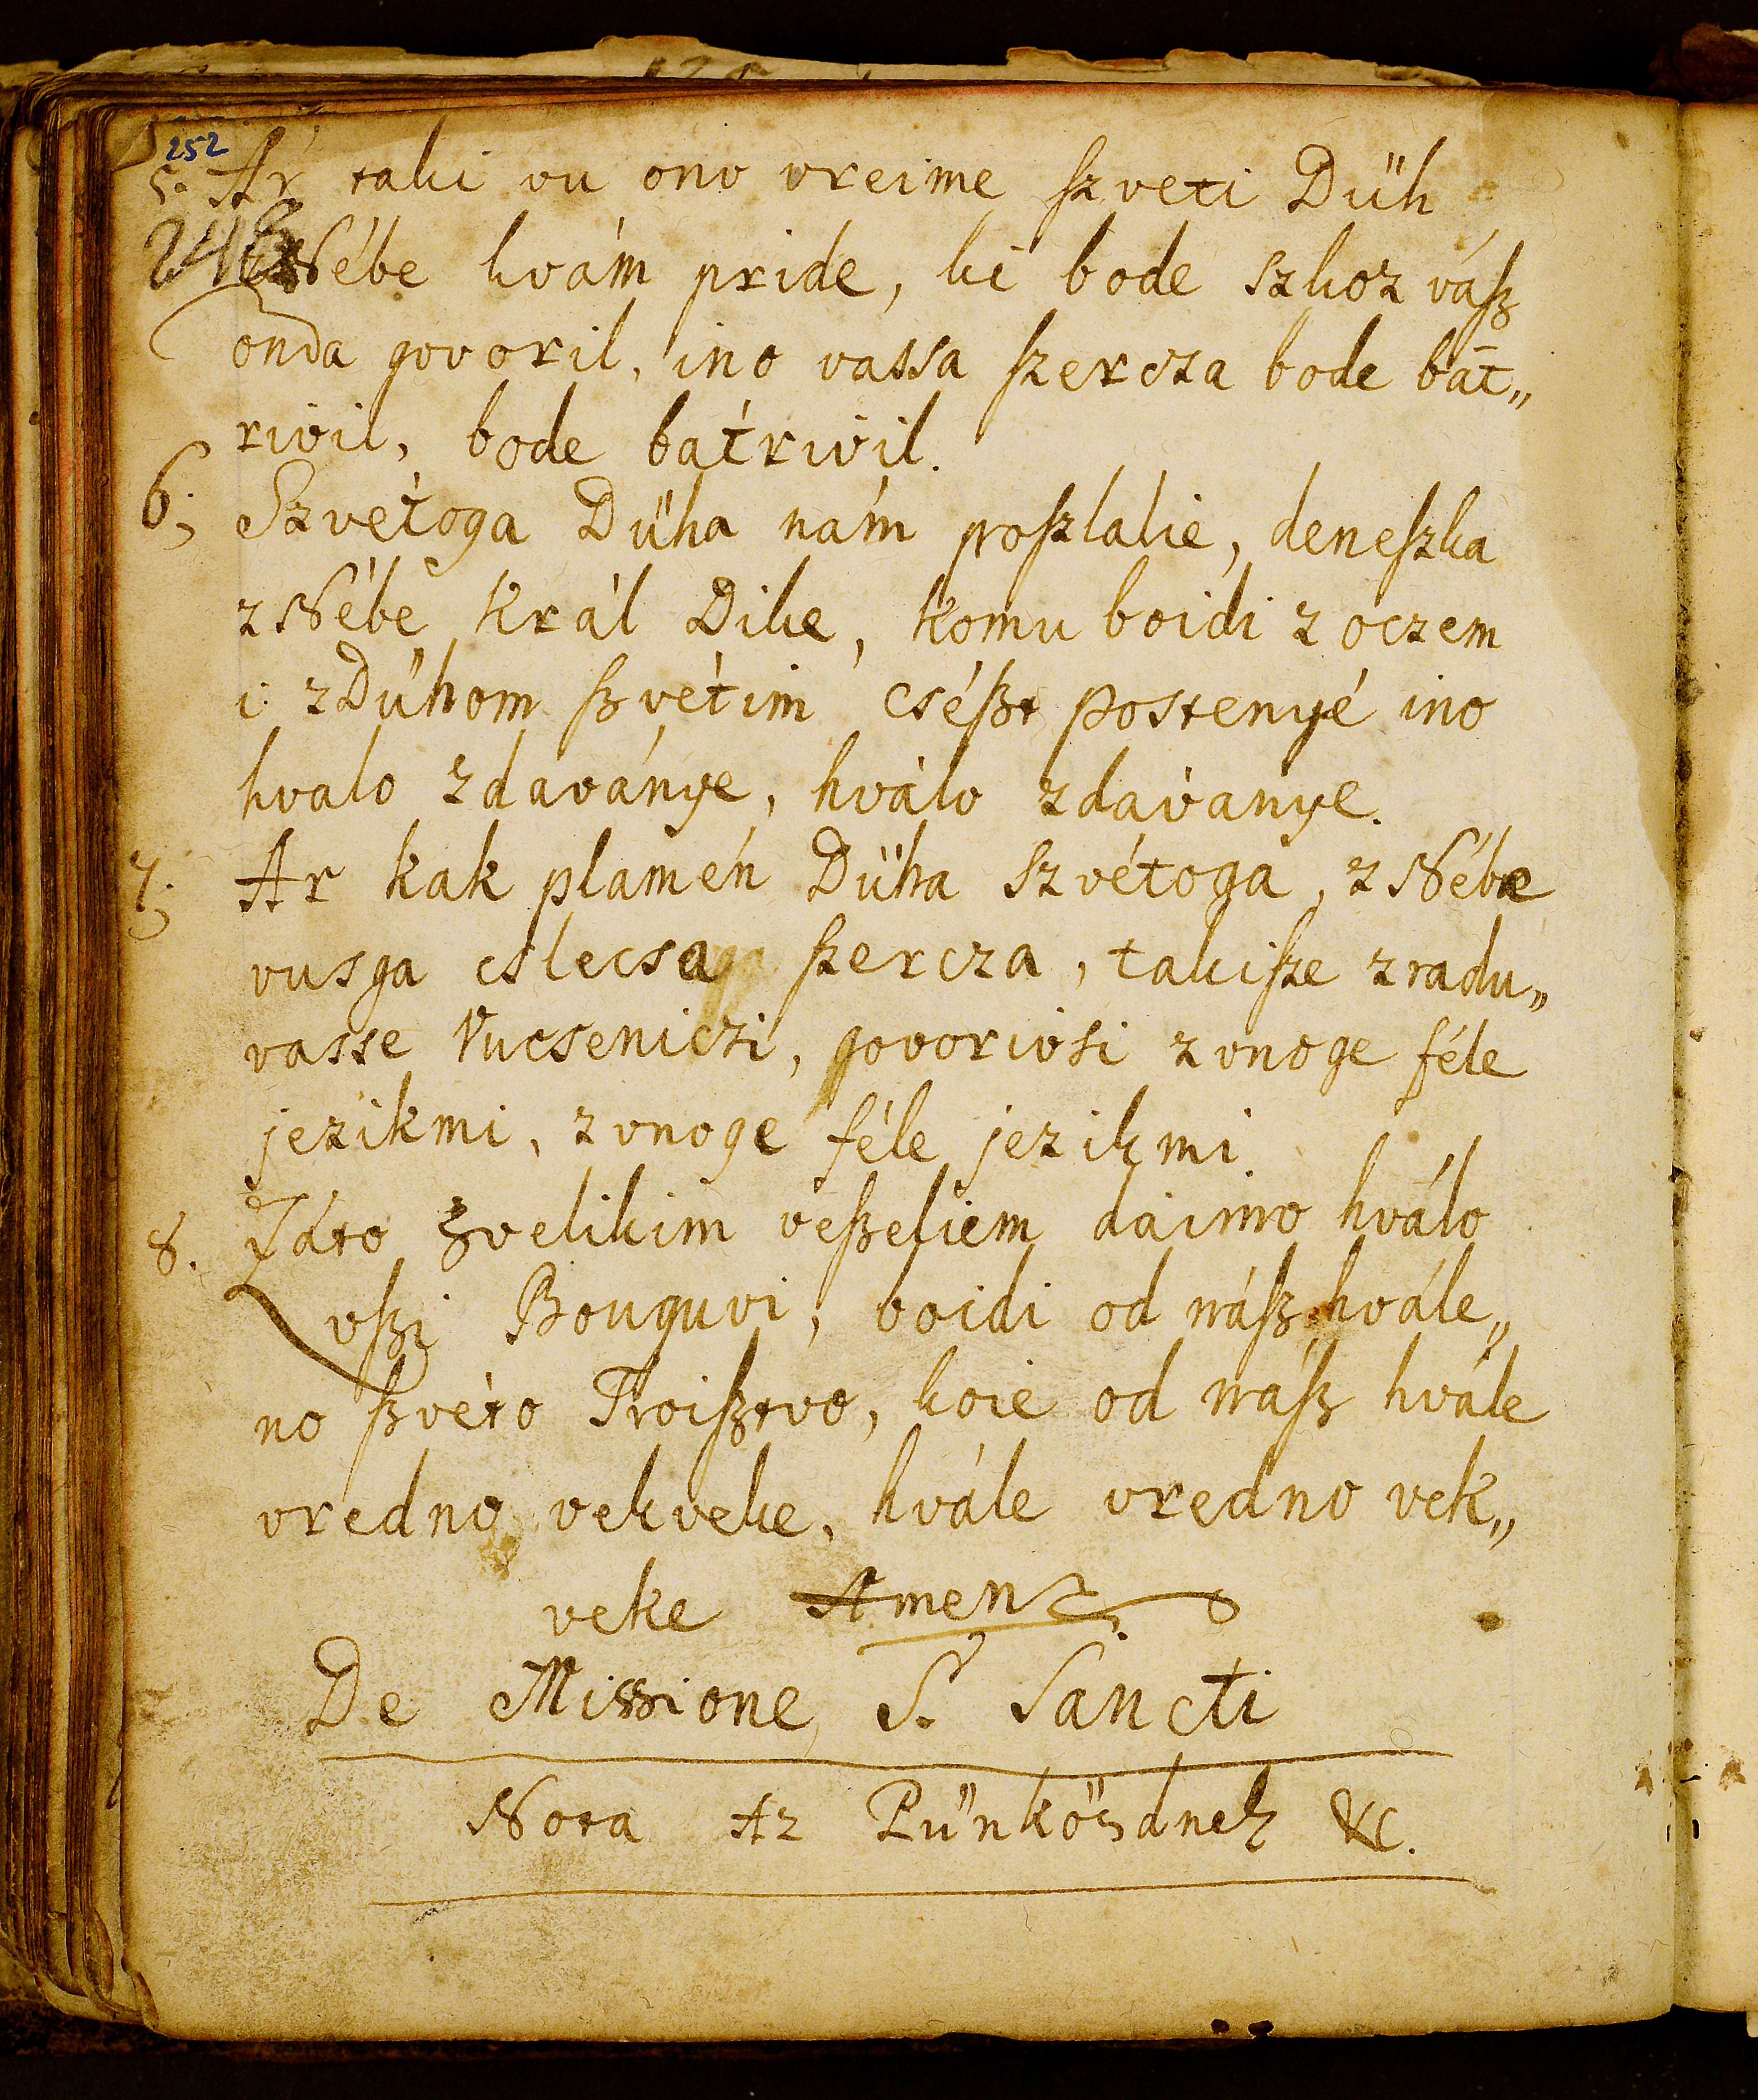 252
5. Ar taki vu ono vreime ſzveti Düh
248
z Nébe kvám pride, ki bode szkoz váſz
onda govoril, ino vassa ſzercza bode bát„
rivil, bode bátrivil.
6; Szvétoga Dühа nám poſzlalie, deneſzka
z Nébe Král Dike, komu boidi z oczem
i: z Dühom ſzvétim cséſzt postenyé ino
hvalo zdaványe, hválo zdávanye.
7; Ar kak plamén Düha Szvétoga, z Nébe
vusga cslecsa ſzercza, takiſze zradu„
vasse Vucseniczi, govorivsi z vnoge féle
jezikmi, z vnoge féle jezikmi.
8. Záto z velikim veſzeliem dáimo hválo
vſzi Bouguvi, boidi od náſz hvále„
no ſzvéto Troiſztvo, koie od náſz hvále
vredno vekveke, hvále vredno vek„
veke Amen
De Missione S. Sancti
Nota Az Pünkösdnek &c.